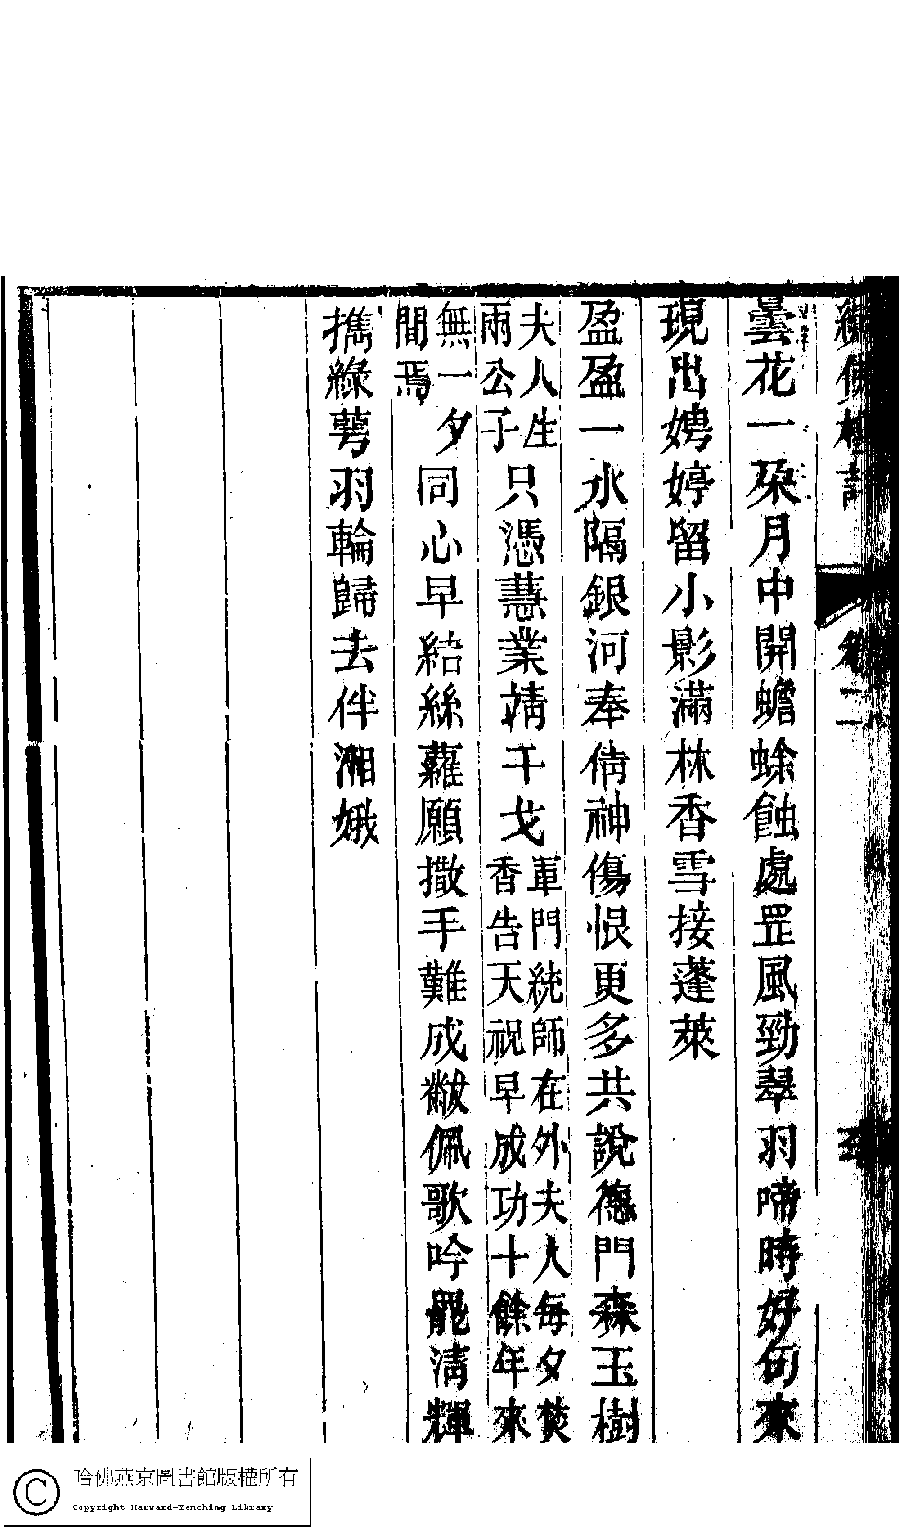 卷二
曇花一朶月中開蟾蜍蝕處罡風勁翠羽啼時好句來
現出娉婷留小影滿林香雪接蓬萊
盈盈一水隔銀河奉倩神傷恨更多共說德門森玉樹
夫人生
兩公子
只憑慧業靖干戈
軍門統師在外夫人每夕焚
香告天祝早成功十餘年來
無一夕
間焉
同心早結絲蘿願撒手難成黻佩歌吟罷清輝
擕綠萼羽輪歸去伴湘娥
哈佛燕京圖書館版權所有
Copyright Harvard-Yenching Library